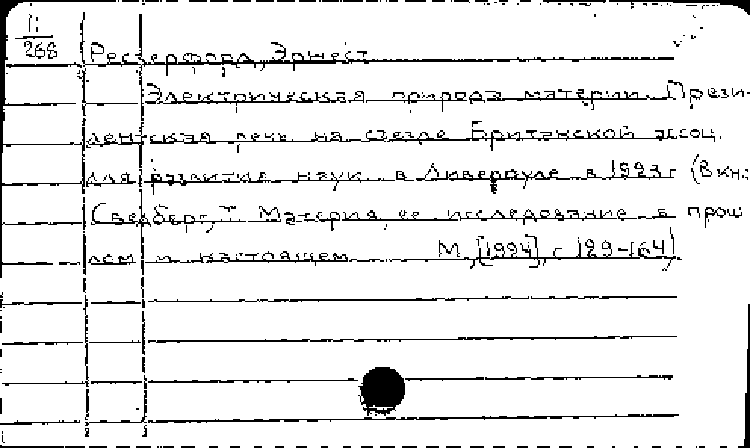 II
268
Рессерфорд, Эрнест
Электрическая природа материи. Прези-
дентская речь на съезде Британской ассоц.
для развития наук в Ливерпуле в 1923 г (В кн.:
Сведберг, Т. Материя, ее исследование в прош
лом и настоящем М., [1924], с 129-164)